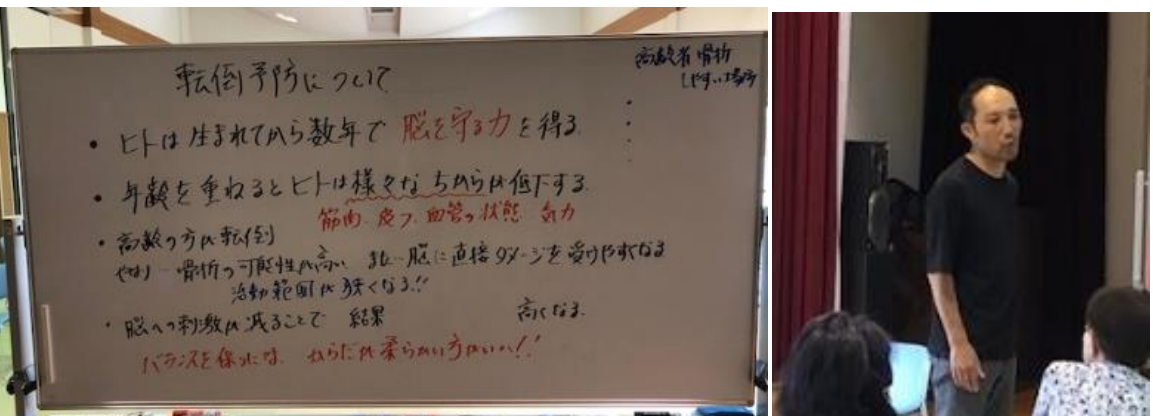 転倒予防について
高齢者骨折
しやすい場所
・ヒトは生まれてから数年で 脳を守る力を得る.
・年齢を重ねるとヒトは様々なちからが低下する.
筋肉、皮フ、血管の状態、気力
・高齢の方が転倒
やはり…骨折の可能性が高い また…脳に直接ダメージを受けやすくなる
活動範囲が狭くなる!!
・脳への刺激が減ることで 結果 高くなる.
バランスを保つには、からだが柔らかい方がいい!!